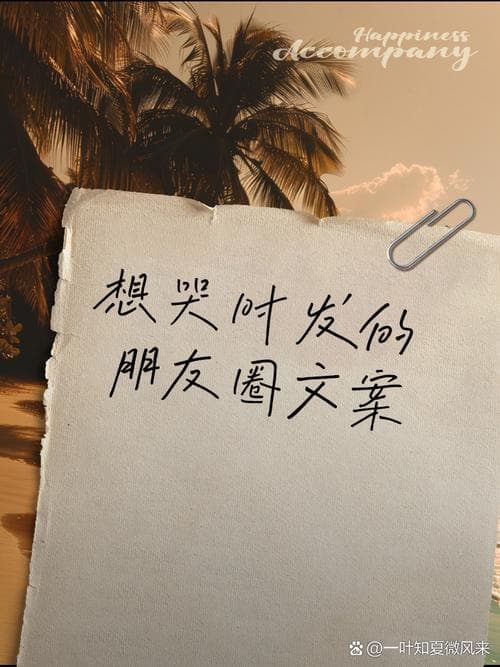 Happiness
Accompany
想哭时发的
朋友圈文案
@一叶知夏微风来